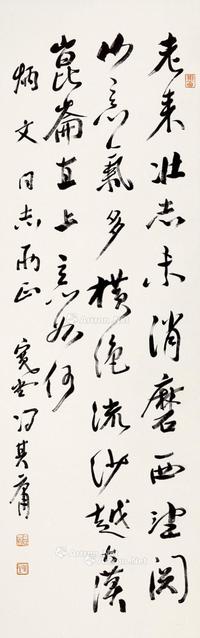 老来壮志未消磨西望关
山意气多横绝流沙越大漠
昆仑直上意如何
炳文同志雨正 宽堂冯其庸